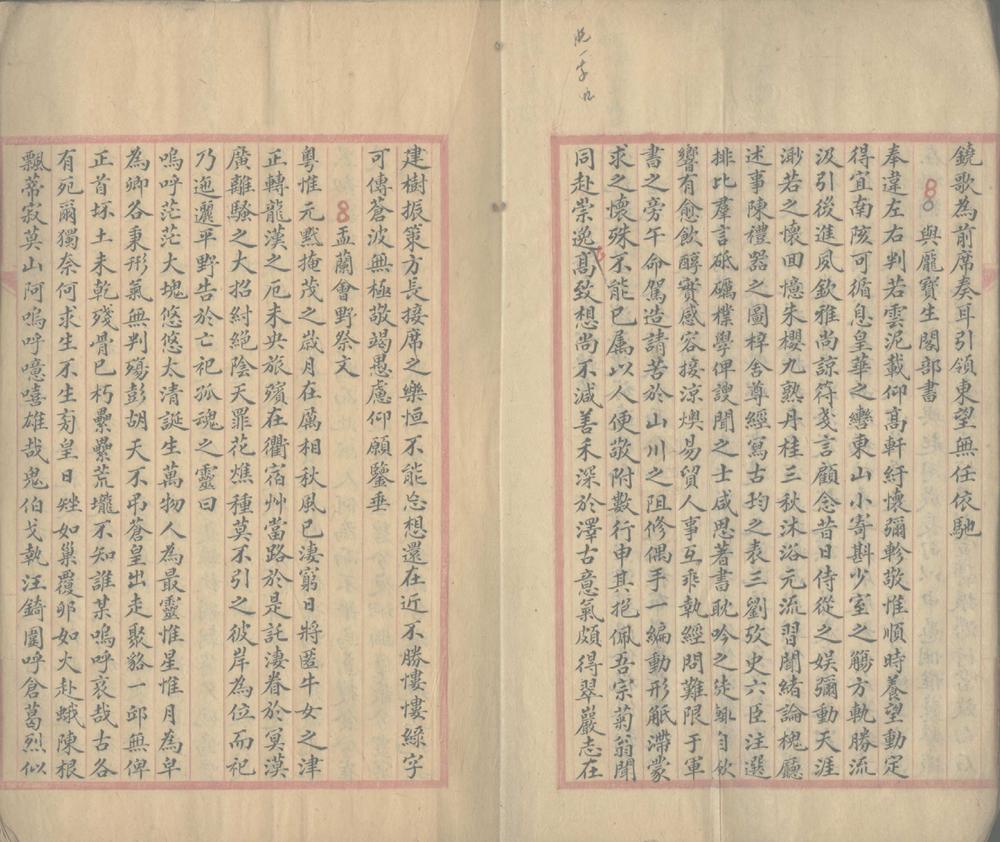 鐃歌為前席奏耳引領東望無任依馳
與龐寶生閣部書
奉違左右判若雲泥載仰高軒紆懷彌軫敬惟順時養望動定
得宜南陔可循息皇華之轡東山小寄斟少室之觴方軌勝流
汲引後進夙欽雅尚諒符箋言顧念昔日侍從之娛彌動天涯
渺若之懷回憶朱櫻九熟丹桂三秋沐浴元流習聞緒論槐廳
述事陳禮器之圖稗舍尊經寫古均之表三劉攷史六臣注選
排比羣言砥礪樸學俾謏聞之士咸思著書耽吟之徒
響有愈飲醇實感容接涼燠易貿人事互乖執經問難限于軍
書之旁午命駕造請苦於山川之阻修偶手一編動形觝滯蒙
求之懷殊不能已属以人便敬附數行申其挹佩吾宗菊翁聞
同赴崇逸高致想尚不減善禾深於澤古意氣頗得翠巖志在
建樹振策方長接席之樂恒不能忘想還在近不勝慺慺綠字
可傳蒼波無極敬竭愚慮仰願鑒垂
盂蘭會野祭文
粵惟元黓掩茂之歲月在厲相秋風已淒窮日將匿牛女之津
正轉龍漢之厄未央旅殯在衢宿艸當路於是託淒眷於冥漠
廣離騷之大招紂絕陰天罪花燋種莫不引之彼岸為位而祀
乃迤邐平野告於亡祀孤魂之靈曰
嗚呼茫茫大塊悠悠太清誕生萬物人為最靈惟星惟月為皁
為卿各秉形氣無判殤彭胡天不弔蒼皇出走聚貉一邱無俾
正首坏土未乾殘骨已朽纍纍荒壠不知誰某嗚呼哀哉古各
有宛爾獨奈何求生不生匄皇日矬如巢覆卵如火赴蛾陳根
飄蔕寂莫山阿嗚呼噫嘻雄哉鬼伯戈執汪錡圍呼倉葛烈似